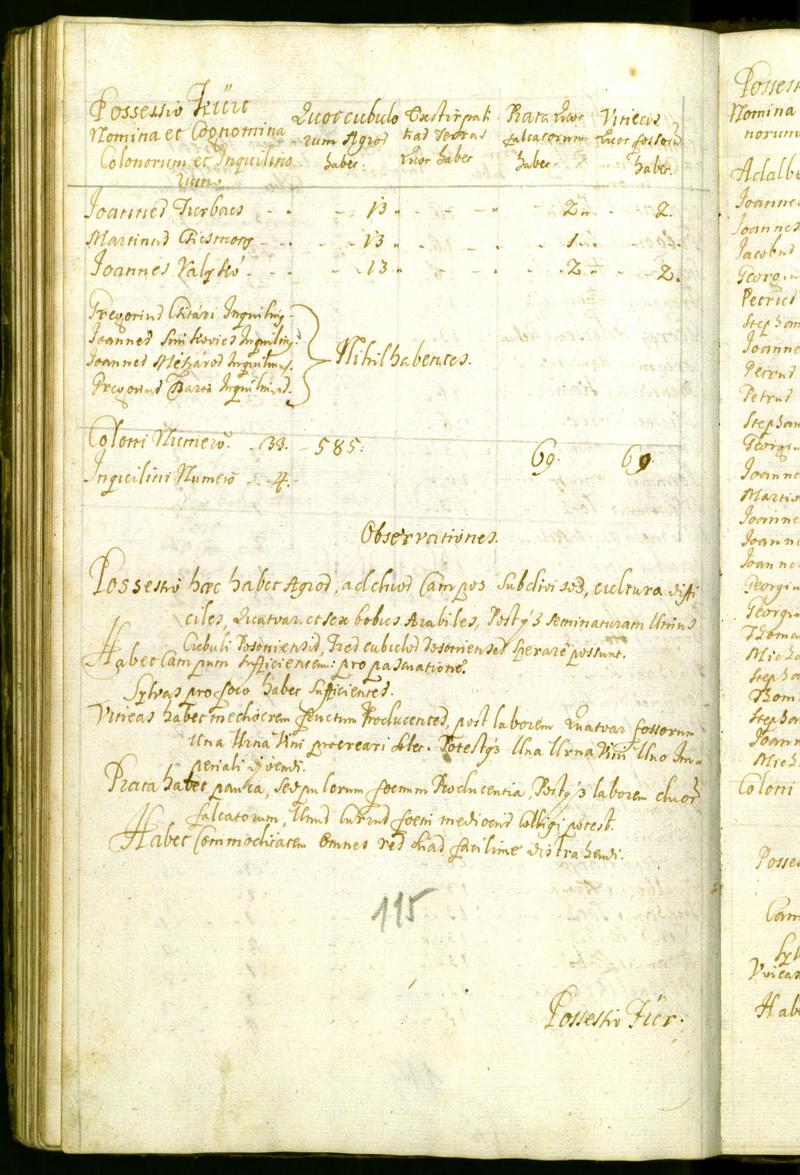 Possessio Fűűr
Nomina et Cognomina
Colonorum et Inquilino
rum.
Quot cubulo
rum Agros
habet.
Extirpati
tias Terras
Quot habet
Prata Quot
falcatorum
habet.
Vineas
Quot fossoru
habet.
Joannes - - - 13 - - - 2 - - 2.
Martinus - - - 13 - - - 1 - -
Joannes Valykó - - - 13 - - - 2 - - 2.
Gregorius Inquiling.
Joannes Sinkovics Inquiling.
Joannes Mészáros Inquilinus.
Gregorius Baris Inquilinus.
Nihil habentes.
Coloni Numero - 33. - 585. 69. 69
Inquilini Numero - - 4.
Observationes.
Possessio haec habet Agros, ad duos Campos subdivisos, cultura diffi
ciles, Quatuor et sex bobus Arabiles, Postq3 seminaturam Unius
Cubuli Posoniensis, Tres cubulos Posonienses sperare possunt.
Habet Campum sufficientem pro pascuatione.
Sylvas pro foco habet sufficientes.
Vineas habet mediocrem fructum Producentes, post laborem Quatuor fossorum
Una Urna Vini procreari solet. Potestq3 Una Urna Vini Uno Im-
periali divendi.
Prata habet pauca, sed foenum Producentia, Postq3 laborem duor
falcatorum, Unus Currus foeni mediocris Colligi potest.
Habet Commoditatem Omnes res suas facilime distrahendi.
115
Possessio Fűr.
Possess
Nomina
norum
Adalb
Joanne
Joannes
Jacobus
Georgiu
Petrus
Stephan
Joanne
Petrus
Petrus
Stephan
Georgiu
Joanne
Martin
Joanne
Joanne
Joanne
Georgiu
Georgiu
Thoma
Micha
Stepha
Thom
Stepha
Joann
Mich
Coloni
Posse
Cam
Sylv
Vineas
Hab